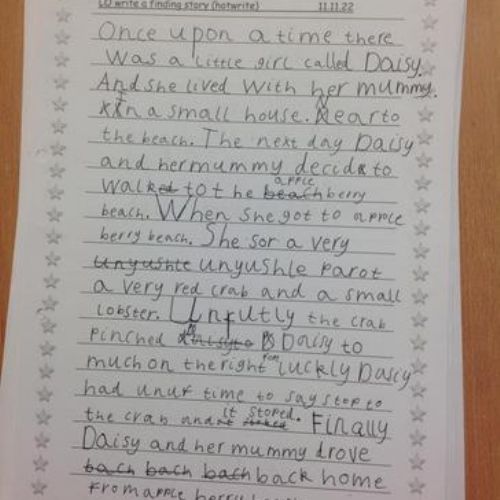 LO write a finding story (hotwrite) 11.11.22
Once upon a time there
Was a little girl called Daisy.
And she lived With her mummy.
In a small house. Near to
the beach. The next day Daisy
and her mummy decids to
Walked to t he beach apple berry
beach. When she got to apple
berry beach. She sor a very
unyushle unyushle parot
a very red crab and a small
lobster. Unfutly the crab
Pinched Daisy to
much on the right luckly Daisy
had unuf time to say stop to
the crab and it stoped. Finally
Daisy and her mummy drove
bach bach bach back home
From apple berry